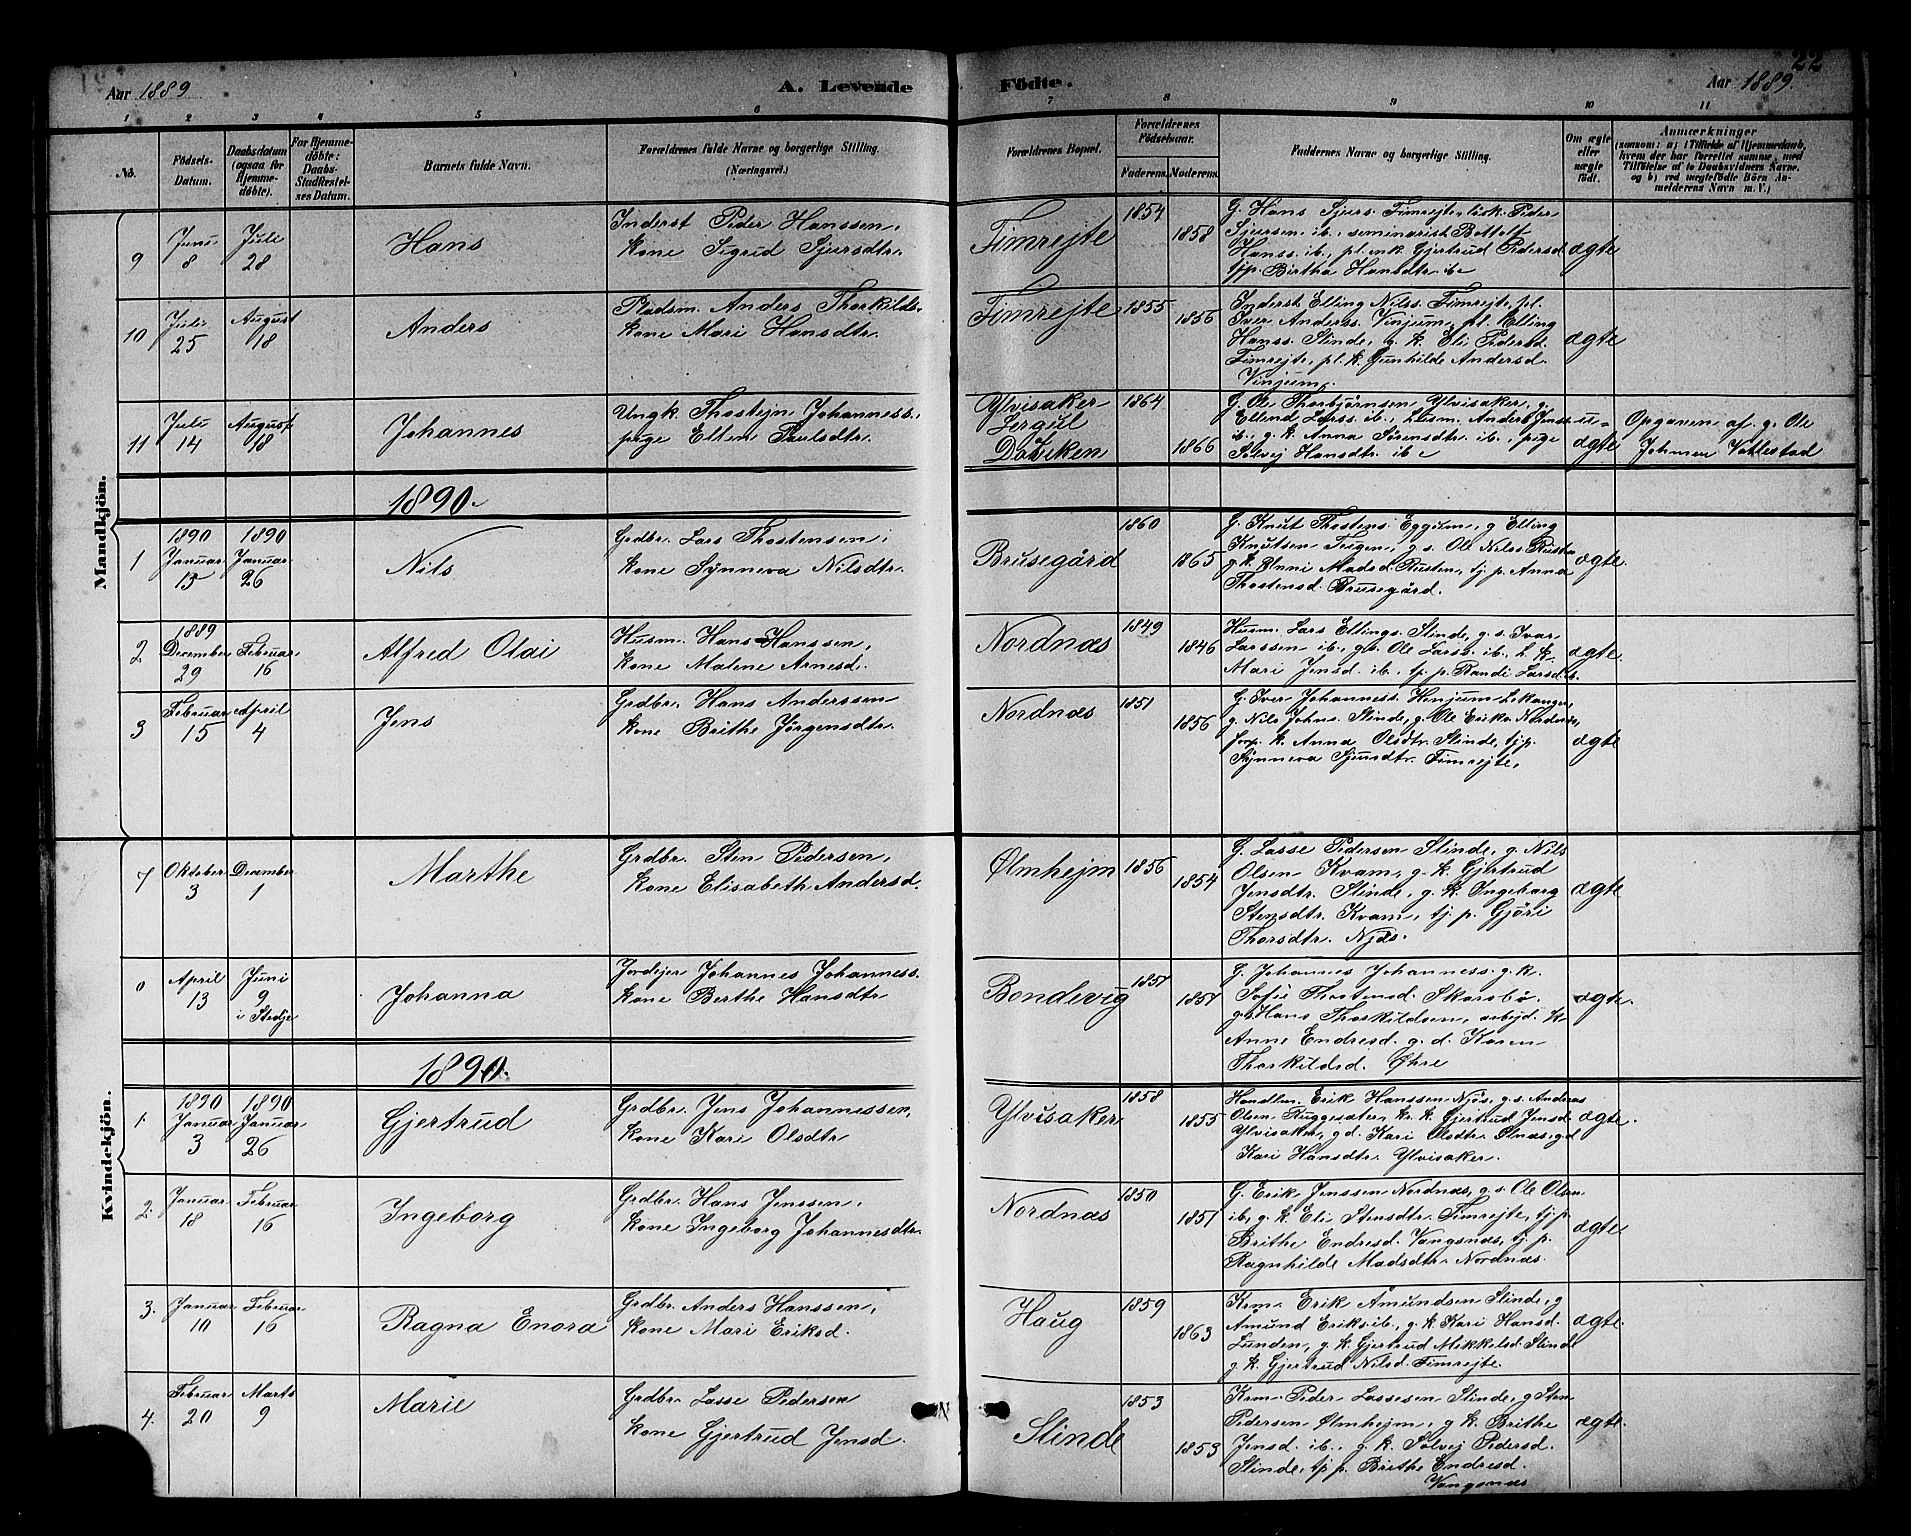 Aar 1889
A. Levende
Födte.
Aar 1889.
22
1 2 3 4 5 6 7 8 9 10 11
No.
Födsels-
Datum.
Daabsdatum
(ogsaa for
Hjemme-
döbte).
For Hjemme-
döbte:
Daabs-
Stadfæstel-
ses Datum.
Barnets fulde Navn.
Forældrenes fulde Navne og borgerlige Stilling.
(Næringsvei.)
Forældrenes Bopæl.
Forældrenes
Födselsaar.
Faderens. Moderens.
Faddernes Navne og borgerlige Stilling.
Om ægte
eller
uægte
født.
Anmærkninger
(saasom: a) i Tilfælde af Hjemmedaab,
hvem der har forrettet samme, med
Tilföielse af to Daabsvidners Navne.
og b) ved uægtefödte Börn An-
melderens Navn m. V.)
Mandkjön.
9
Juni
8
Juli
28
Hans
Inderst Peder Hanssen,
kone Sigrid Sjursdtr.
Fimrejte
1854
1858
G. Hans Sjurs. Fimrejte, lisk. Peder
Sjursen ib., seminarist Bottolf
Hanss. ib., pl. enk. Gjertrud Pedersd
tjp. Birtha Hansdtr. ib.
ægte
10
Juli
25
August
18
Anders
Pladsm. Anders Thorkilds.
kone Mari Hansdtr.
Fimrejte
1855
1856
Inderst Elling Nilss. Fimrejte, pl.
Iver Anderss. Vinjum, pl. Elling
Hanss. Slinde, g. k. Eli Pedersd.
Fimrejte, pl. k. Gunhilde Andersd.
Vinjum.
ægte
11
Juli
14
August
18
Johannes
Ungk. Thostejn Johanness.,
pige Ellen Paulsdtr.
Ylvisaker
Dövken
1864
1866
G. Ole Thorbjörnsen Ylvisaker, g.
Ellend Larss. ib., Anders Jenss
ib., g. k. Anna Sörensdtr. ib., pige
Solvej Hansdtr. ib.
u=
ægte
Opgaven af g. Ole
Johnsen Vallestad
1890.
1
1890
Januar
13
1890
Januar
26
Nils
Grdbr. Lars Thostensen,
kone Synneva Nilsdtr.
Brusegård
1860
1865
G. Knut Thostens. Eggum, g Elling
Knutsen Teigen, g. s. Ole Nilss. Rusten
g. k. Anni Madsd. Rusten, tj. p. Anna
Thostensd. Brusegård.
ægte.
2
1889
December
29
Februar
16
Alfred Olai
Husm. Hans Hanssen,
kone Malene Arnesd.
Nordnæs
1849
1846
Husm. Lars Ellings. Slinde, g. s. Ivar
Larssen ib., g. s. Ole Larss. ib. k.
Mari Jensd. ib., tj. p. Randi Larsd. ib.
ægte.
3
Februar
15
April
4
Jens
Grdbr. Hans Anderssen
kone Brithe Jörgensdtr.
Nordnæs
1851
1856
G. Iver Johanness. Henjum Lekanger,
g. Nils Johns. Slinde, g. Ole Eriks. Nordnæs,
k. Anna Olsdtr. Slinde, tj. p.
Synneva Sjursdtr. Fimrejte.
ægte
Kvindekjön.
7
Oktober
3
December
1
Marthe
Grdbr. Sten Pedersen,
kone Elisabeth Andersd.
Ølmhejm
1856
1854
G. Lasse Pedersen Slinde, g. Nils
Olsen Kvam, g. k. Gjertrud
Jensdtr. Slinde, g. k. Ingeborg
Stensdtr. Kvam, tj. p. Gjöri
Thorsdtr. Njös.
ægte
April
13
Juni
9
i Stedje
Johanna
Jordejer Johannes Johanness.
kone Berthe Hansdtr
Bondevig
1857
1857
G. Johannes Johanness. g. k.
Sofie Thostensd. Skarsbö.
g. Hans Thorkildsen, arbejd. k.
Anne Endresd. g. d. Karen
Thorkildsd. Øhre
ægte.
1890.
1.
1890
Januar
3
1890
Januar
26
Gjertrud
Grdbr. Jens Johannessen,
kone Kari Olsdtr
Ylvisaker
1858
1855
Handlm. Erik Hanssen Njös, g. s. Andreas
Olsen Ruggesæter, k. k. Gjertrud Jensd.
Ylvisaker, g. d. Kari Olsdtr. Ølnæs, g. d
Kari Hansdtr. Ylvisaker.
ægte.
2.
Januar
18
Februar
16
Ingeborg
Grdbr. Hans Jenssen,
kone Ingeborg Johannesdtr.
Nordnæs
1850
1851
G. Erik Jenssen Nordnæs, g. s. Ole Olsen
ib., g. k. Eli Stensdtr. Fimrejte, tj. p.
Brithe Endresd. Vangsnæs, tj. p.
Ragnhilde Madsdtr. Nordnæs.
ægte.
3.
Januar
10
Februar
16
Ragna Enora
Grdbr. Anders Hanssen,
kone Mari Eriksd.
Haug
1859
1863
Krm. Erik Amundsen Slinde, g
Amund Eriks. ib., g. k. Kari Hansd.
Lunden, g. k. Gjertrud Mikkelsd. Slinde
g. k. Gjertrud Nilsd. Fimrejte.
ægte.
4.
Februar
20
Marts
9
Marie
Grdbr. Lasse Pedersen
kone Gjertrud Jensd.
Slinde
1853
1853
Krm. Peder Lassesen Slinde, g Sten
Pedersen Ølmhejm, g. k. Brithe
Jensd. ib., g. k. Solvej Pedersd.
Slinde, tj. p. Brithe Endresd.
Vangsnæs
ægte.